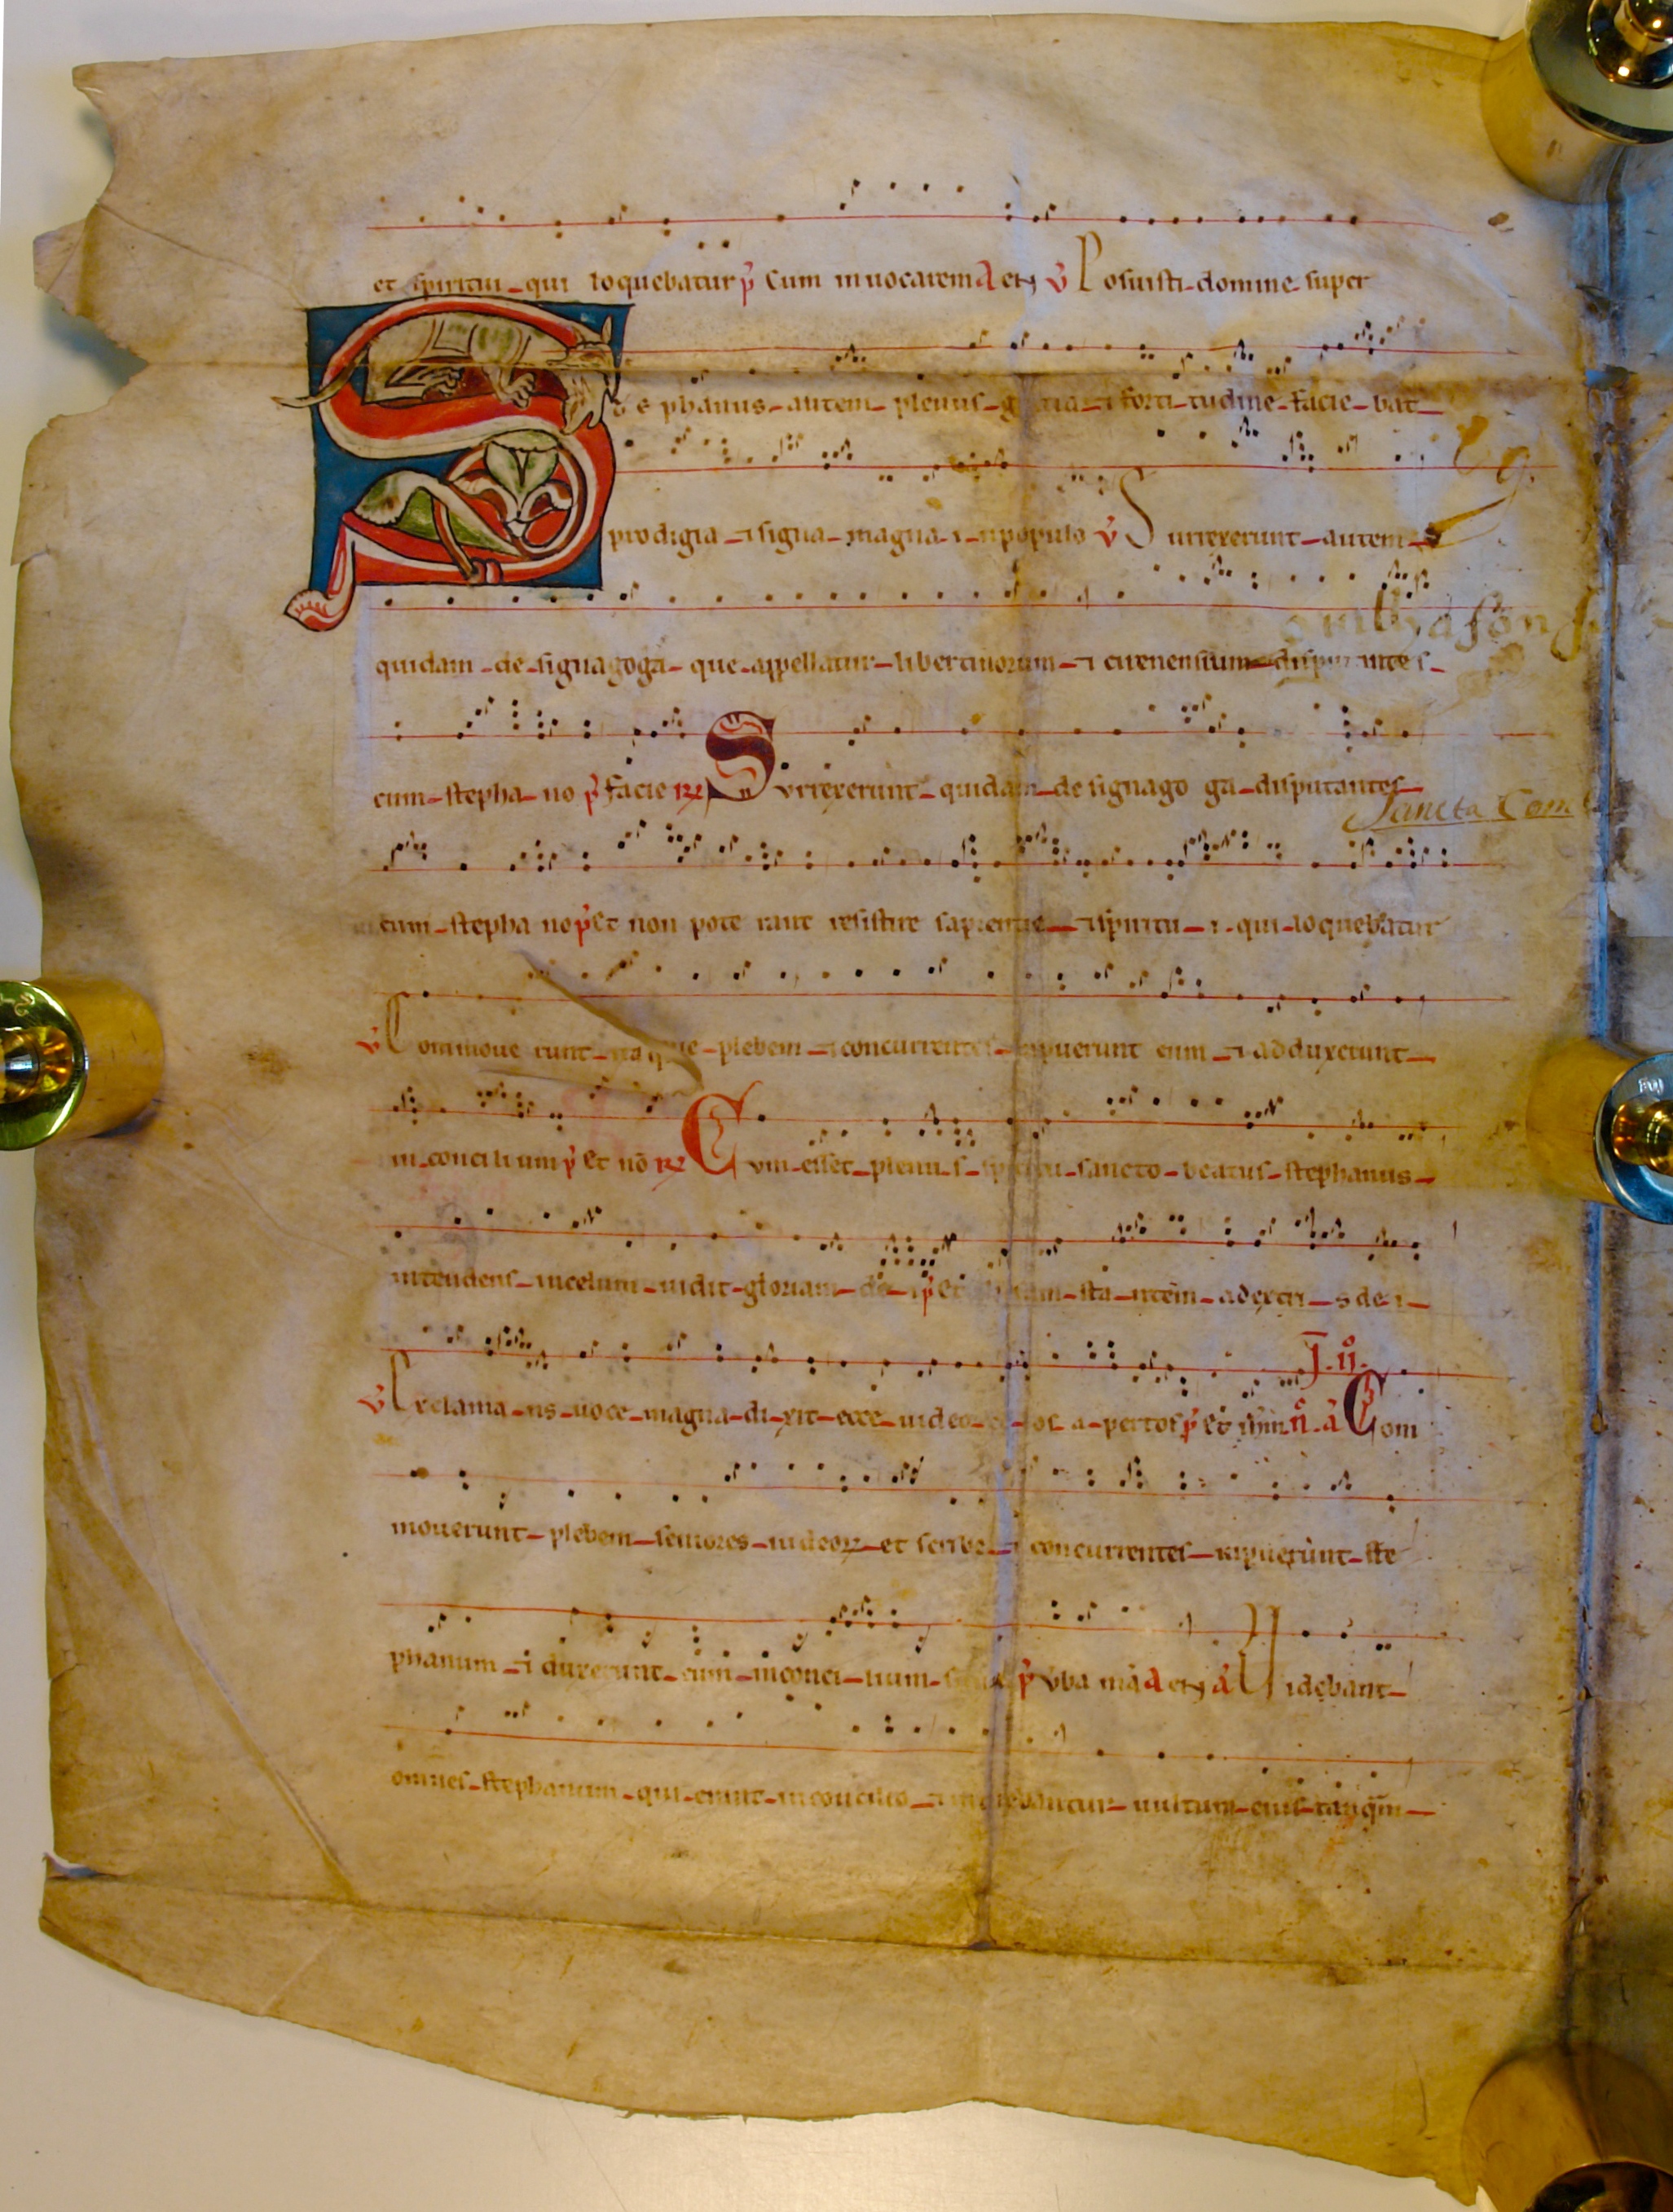 et spiritui - qui loquebatur p̄ Cum inuocarem A euꝫ v̄ Posuisti - domine - super
Ste phanus - autem - plenus - gratia - ⁊ forti - tudine - facie - bat -
prodigia - ⁊ signa - magna - i - npopulo v̄ Surrexerunt - autem -
quidam - de - signagoga - que - appellatur - libertinorum - ⁊ cirenensium - disputantes -
cum - stepha - no p̄ facie ℞ Surrexerunt - quidam - de signago ga - disputantes -
Sancta Com
cum - stepha no p̄ Et non pote rant resistere sapientie - ⁊ spiritu - i - qui - loquebatur
v̄ Conmoue runt - itaque - plebem - ⁊ concurrentes - rapuerunt eum - ⁊ adduxerunt -
in - conci li um p̄ Et nō ℞ Cum - esset - plenu - s - spiritu - sancto - beatus - stephanus -
intendens - incelum - uidit - gloriam - de - i p̄ Et - sta - ntem - adextri - s de - i -
v̄ Exclama - ns - uoce - magna - di - xit - ecce - uideo - celos - a - pertos p̄ Et ihm̄ Com
mouerunt - plebem - seniores - iudeoꝝ - et scribe - ⁊ concurrentes - rapuerunt - ste
phanum - ⁊ duxerunt - eum - inconci - lium - p̄ Vba mā A euꝫ ā Uidebant -
omnes - stephanum - qui - erant - inconcilio - ⁊ intuebantur - uultum - eius - tanq̄m -